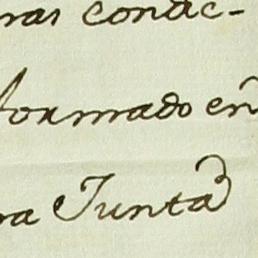 ras conac-
formado en
ra Junta